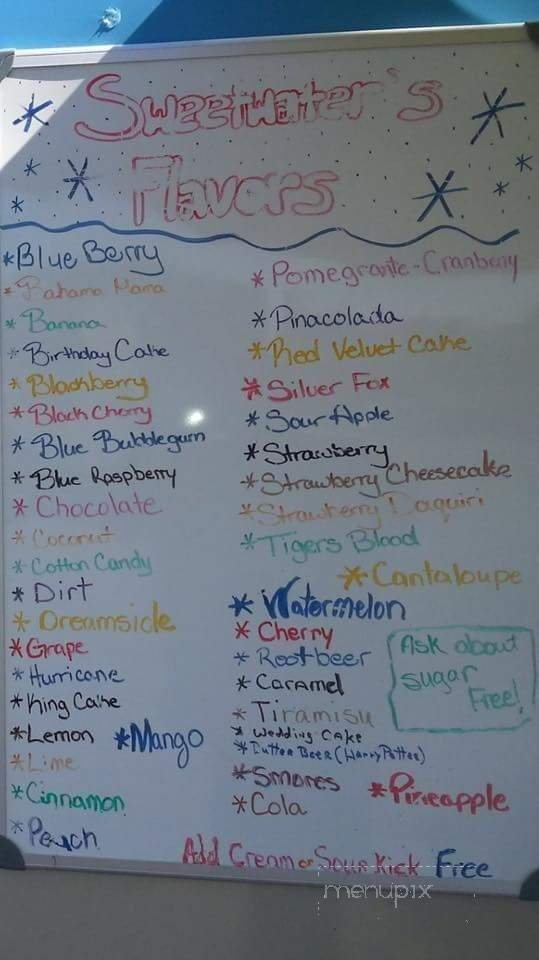 Sweetwater's
Flavors
*Blue Berry
*Bahama Mama
*Banana
*Birthday Cake
*Blackberry
*Black Cherry
*Blue Bubblegum
*Blue Raspberry
*Chocolate
*Coconut
*Cotton Candy
*Dirt
*Dreamsicle
*Grape
*Hurricane
*King Cake
*Lemon *Mango
*Lime
*Cinnamon
*Peach
*Pomegrante-Cranberry
*Pinacolada
*Red Velvet Cake
*Silver Fox
*Sour Apple
*Strawberry
*Strawberry Cheesecake
*Strawberry Daquiri
*Tigers Blood
*Cantaloupe
*Watermelon
*Cherry
*Rootbeer
*Caramel
*Tiramisu
*Wedding Cake
*Butter Beer (Harry Potter)
*Smores *Pineapple
*Cola
Ask about
sugar
Free!
Add Cream or Sour Kick Free
menupix